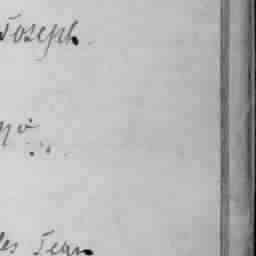 Joseph
les Jean